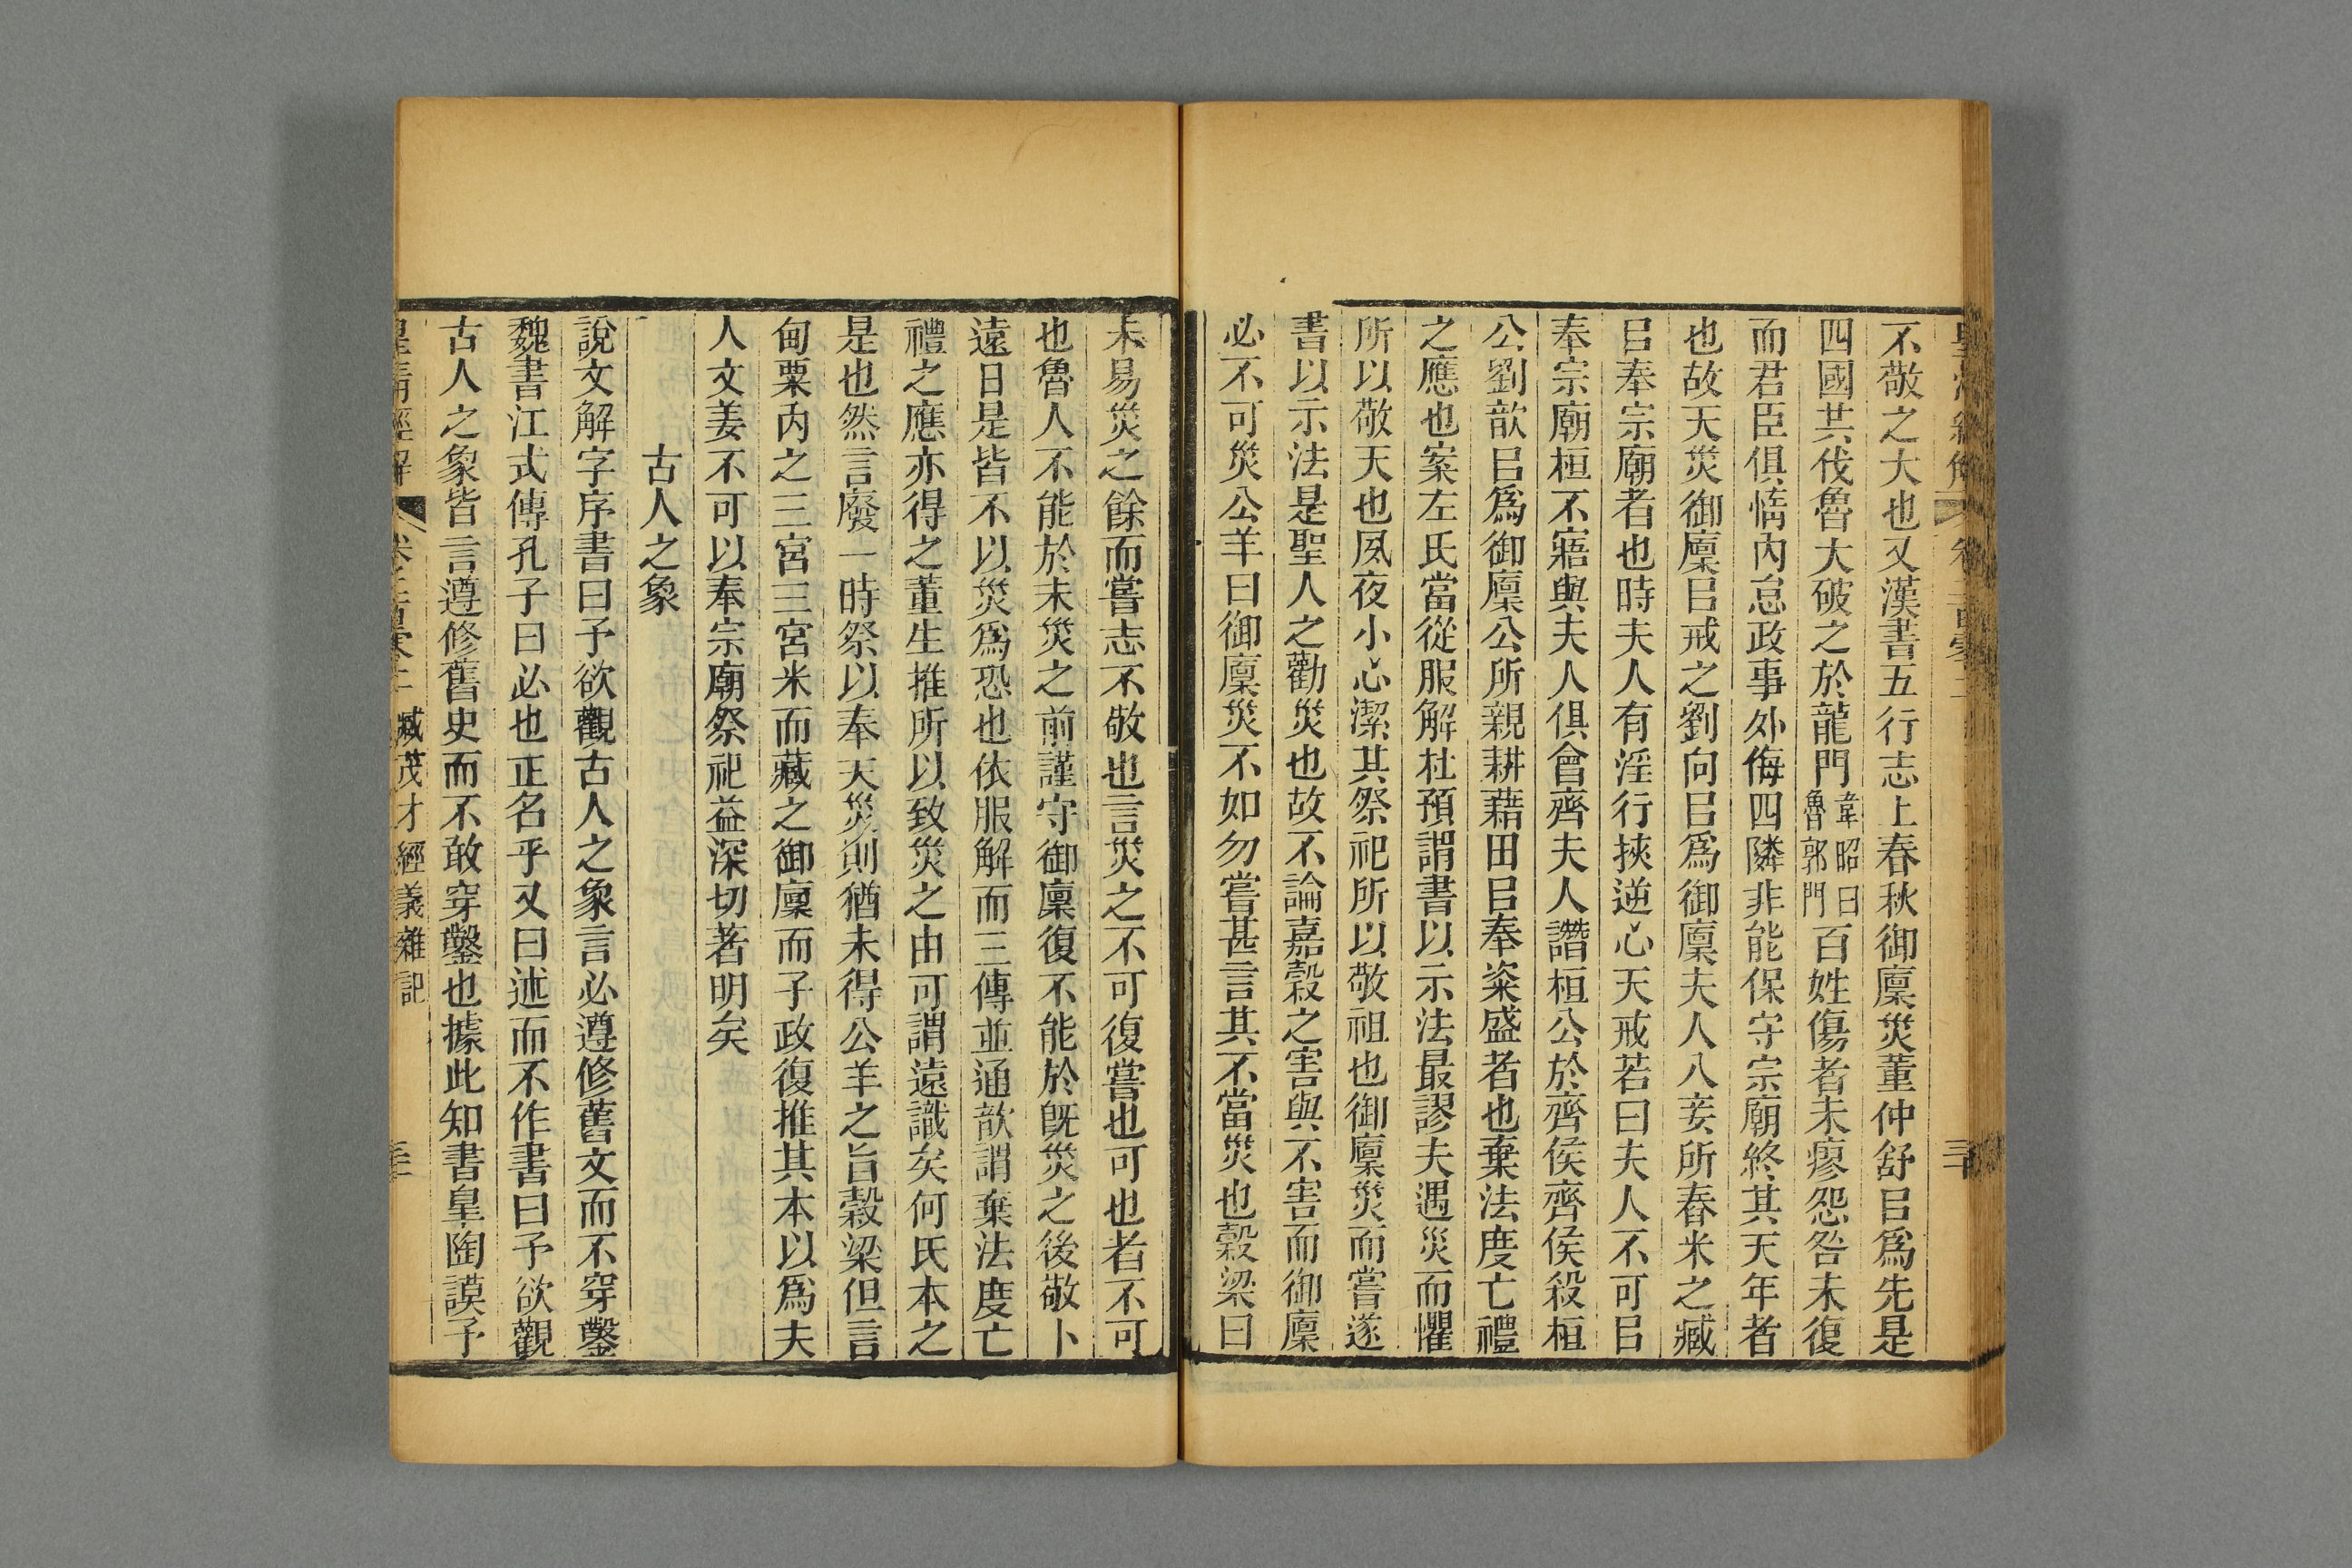 不敬之大也又漢書五行志上春秋御廩災董仲舒㠯爲先是
四國共伐魯大破之於龍門韋昭曰魯郭門百姓傷者未瘳怨咎未復
而君臣俱惰內怠政事外侮四隣非能保守宗廟終其天年者
也故天災御廩㠯戒之劉向㠯爲御廩夫人八妾所舂米之臧
㠯奉宗廟者也時夫人有淫行挾逆心天戒若曰夫人不可㠯
奉宗廟桓不寤與夫人俱會齊夫人譖桓公於齊侯齊侯殺桓
公劉歆㠯爲御廩公所親耕藉田㠯奉粢盛者也棄法度亡禮
之應也案左氏當從服解杜預謂書以示法最謬夫遇災而懼
所以敬天也夙夜小心潔其祭祀所以敬祖也御廩災而嘗遂
書以示法是聖人之勸災也故不論嘉穀之害與不害而御廩
必不可災公羊曰御廩災不如勿嘗甚言其不當災也穀梁曰
未易災之餘而嘗志不敬也言災之不可復嘗也可也者不可
也魯人不能於未災之前謹守御廩復不能於旣災之後敬卜
遠日是皆不以災爲恐也依服解而三傳並通歆謂棄法度亡
禮之應亦得之董生推所以致災之由可謂遠識矣何氏本之
是也然言廢一時祭以奉天災則猶未得公羊之旨穀梁但言
甸粟內之三宮三宮米而藏之御廩而子政復推其本以爲夫
人文姜不可以奉宗廟祭祀益深切著明矣
古人之象
說文解字序書曰予欲觀古人之象言必遵修舊文而不穿鑿
魏書江式傳孔子曰必也正名乎又曰述而不作書曰予欲觀
古人之象皆言遵修舊史而不敢穿鑿也據此知書皇陶謨予
皇清經解 臧茂才經義雜記